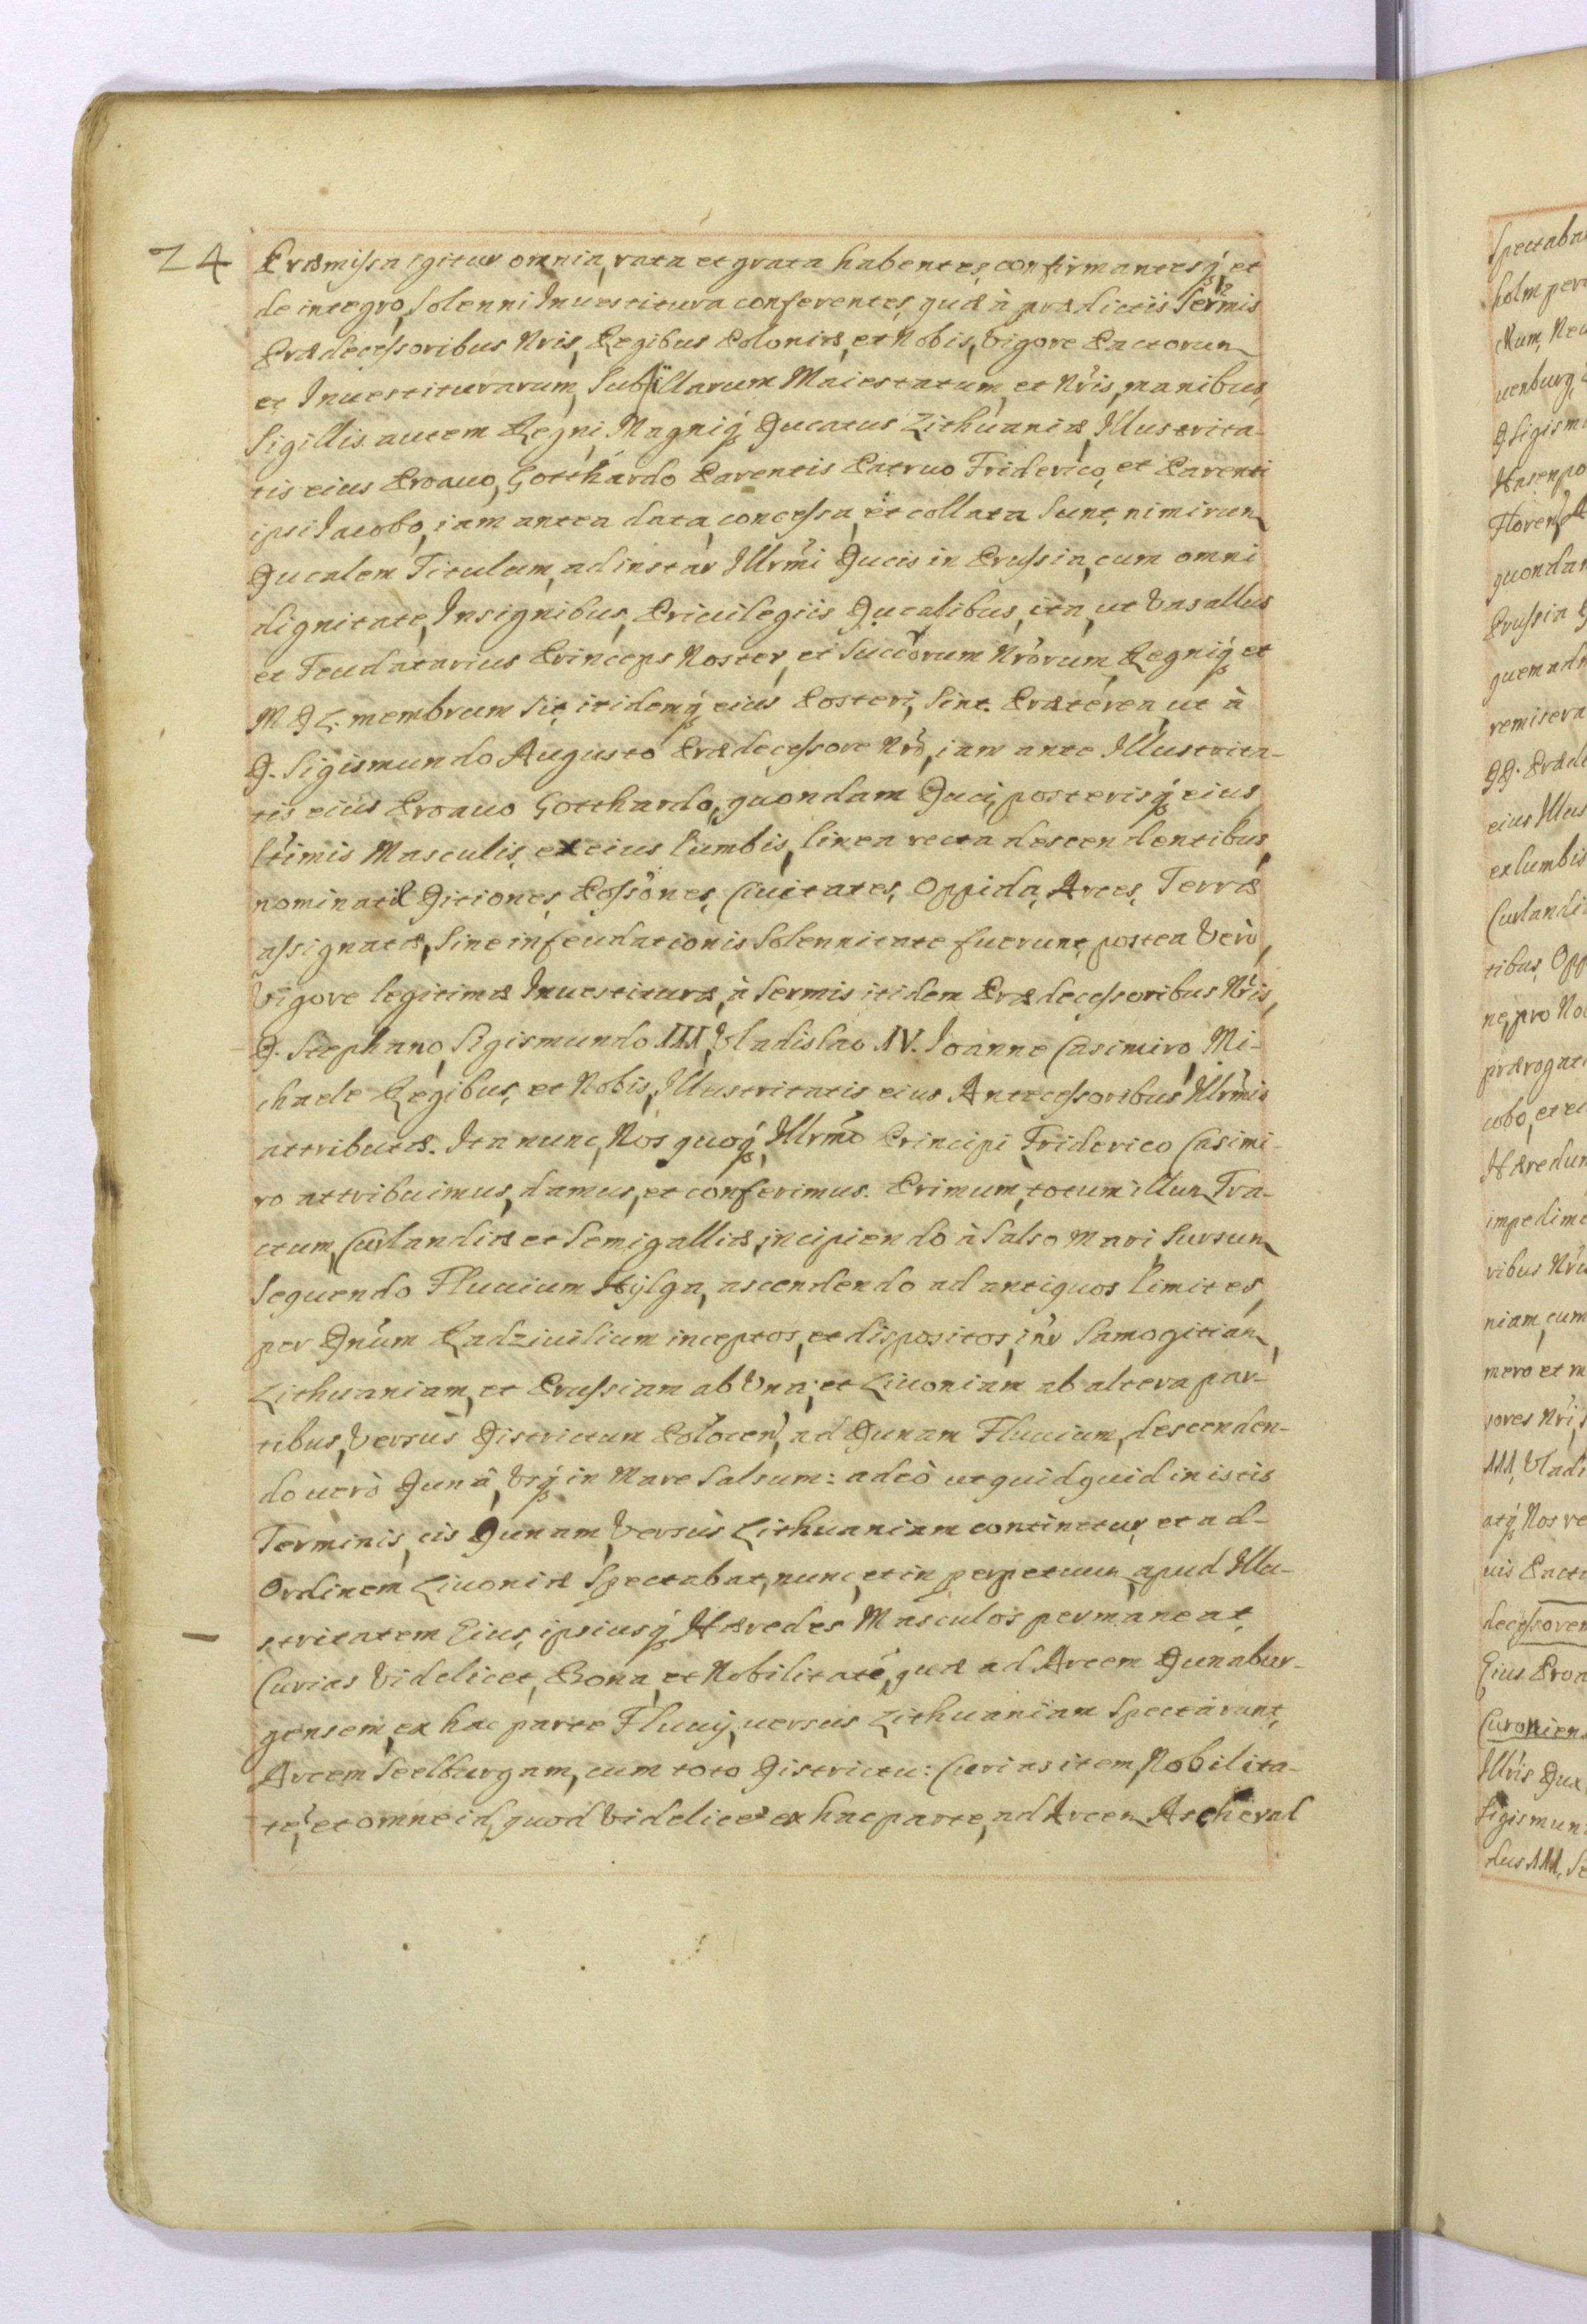 24
Præmissa igitur omnia, rata et grata habentes, confirmantesq́, et
de integro, Solenni Inuestitura conferentes, quæ à prædictis Sermis
Prædecessoribus Nris, Regibus Poloniæ, et Nobis, vigore Pactorum
et Inuestiturarum, Sub illarum Maiestatum, et Nris, manibus,
Sigillis autem Regni, Magniq́ Ducatus Lithuaniæ, Illustrita-
tis eius Proauo, Gotthardo Parentis Patruo Friderico, et Parenti
ipsi Iacobo, iam antea data, concessa, et collata Sunt, nimirum
Ducalem Titulum, ad instar Illrmi Ducis in Prussia, cum omni
dignitate, Insignibus, Priuilegiis Ducalibus, ita, ut Vasallus
et Feudatarius Princeps Noster, et Succorum Nrorum, Regniq́ et
M. D L. membrum Sit, itidemq́ eius Posteri, Sint. Præterea, ut à
D. Sigismundo Augusto Prædecessore Nro, iam ante Illustrita-
tis eius Proauo Gotthardo, quondam Duci, posterisq́ eius
ltimis Masculis, ex eius lumbis, linea recta descendentibus,
nominatæ Ditiones, Possones, Ciuitates, Oppida, Arces, Terræ
assignatæ, Sine infeudationis Solennitate fuerunt, postea Verò,
Vigore legitimæ Inuestituræ, à Sermis itidem Prædecessoribus Nris,
D. Stephano, Sigismundo III, Vladislao IV. Ioanne Casimiro, Mi-
chaele Regibus, et Nobis, Illustritatis eius Antecessoribus Illrmis
attributæ. Ita nunc, Nos quoq́, Illrmo Principi Friderico Casimi-
ro attribuimus, damus, et conferimus. Primum, totum illum Tra-
ctum, Curlandiæ et Semigalliæ, incipiendo à Salso Mari, Sursum
Sequendo Fluuium Hÿlga, ascendendo ad antiquos Limites,
per Dnum Radziuilium inceptos, et dispositos, inr Samogitiam,
Lithuaniam, et Prussiam ab Vna, et Liuoniam ab altera par-
tibus, Versus Districtum Polocen, ad Dunam Fluuium, descenden-
do uerò Dunâ, Vsq́ in Mare Salsum: adeò ut quidquid in istis
Terminis, cis Dunam, Versùs Lithuaniam continetur, et ad-
Ordinem Liuoniæ Spectabat, nunc, et in perpetuum, apud Illu-
stritatem Eius, ipsiusq́ Hæredes Masculos permaneat,
Curias Videlicet, Bona, et Nobilitaté, quæ ad Arcem Dunabur-
gensem, ex hac parte Fluuij, uersus Lithuaniam Spectarunt,
Arcem Seelburgam, cum toto Districtu: Curias item, Nobilita-
té, et omne id, quod Videlicet ex hac parte, ad Arcem Ascherad
Spectaba
holm per
ckum, Neu
uenburg,
D Sigism
Hasenpo
Floren
quondam
Prussia
quemadm
remisera
DD. Præde
eius Illus
ex lumbis
Curlandi
tibus, Opp
ne, pro No
prærogati
cobo, et ei
Hæredum
impedime
ribus Nri
niam, cum
mero et m
sores Nri,
III, Vladi
atq́ Nos re
uis Pacti
decessores
Eius Proa
Curonien
Illris Dux
Sigismun
dus III, St